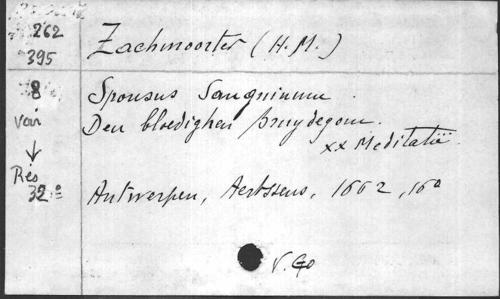 262
395
Zachmoorter (H. M.)
8
Spousus Sanguinum.
Den bloedighen bruydegom.
xx Meditatiē.
Voir
↓
Rés
32.°
Antwerpen, Aertssens, 1662, 16°
V. Go